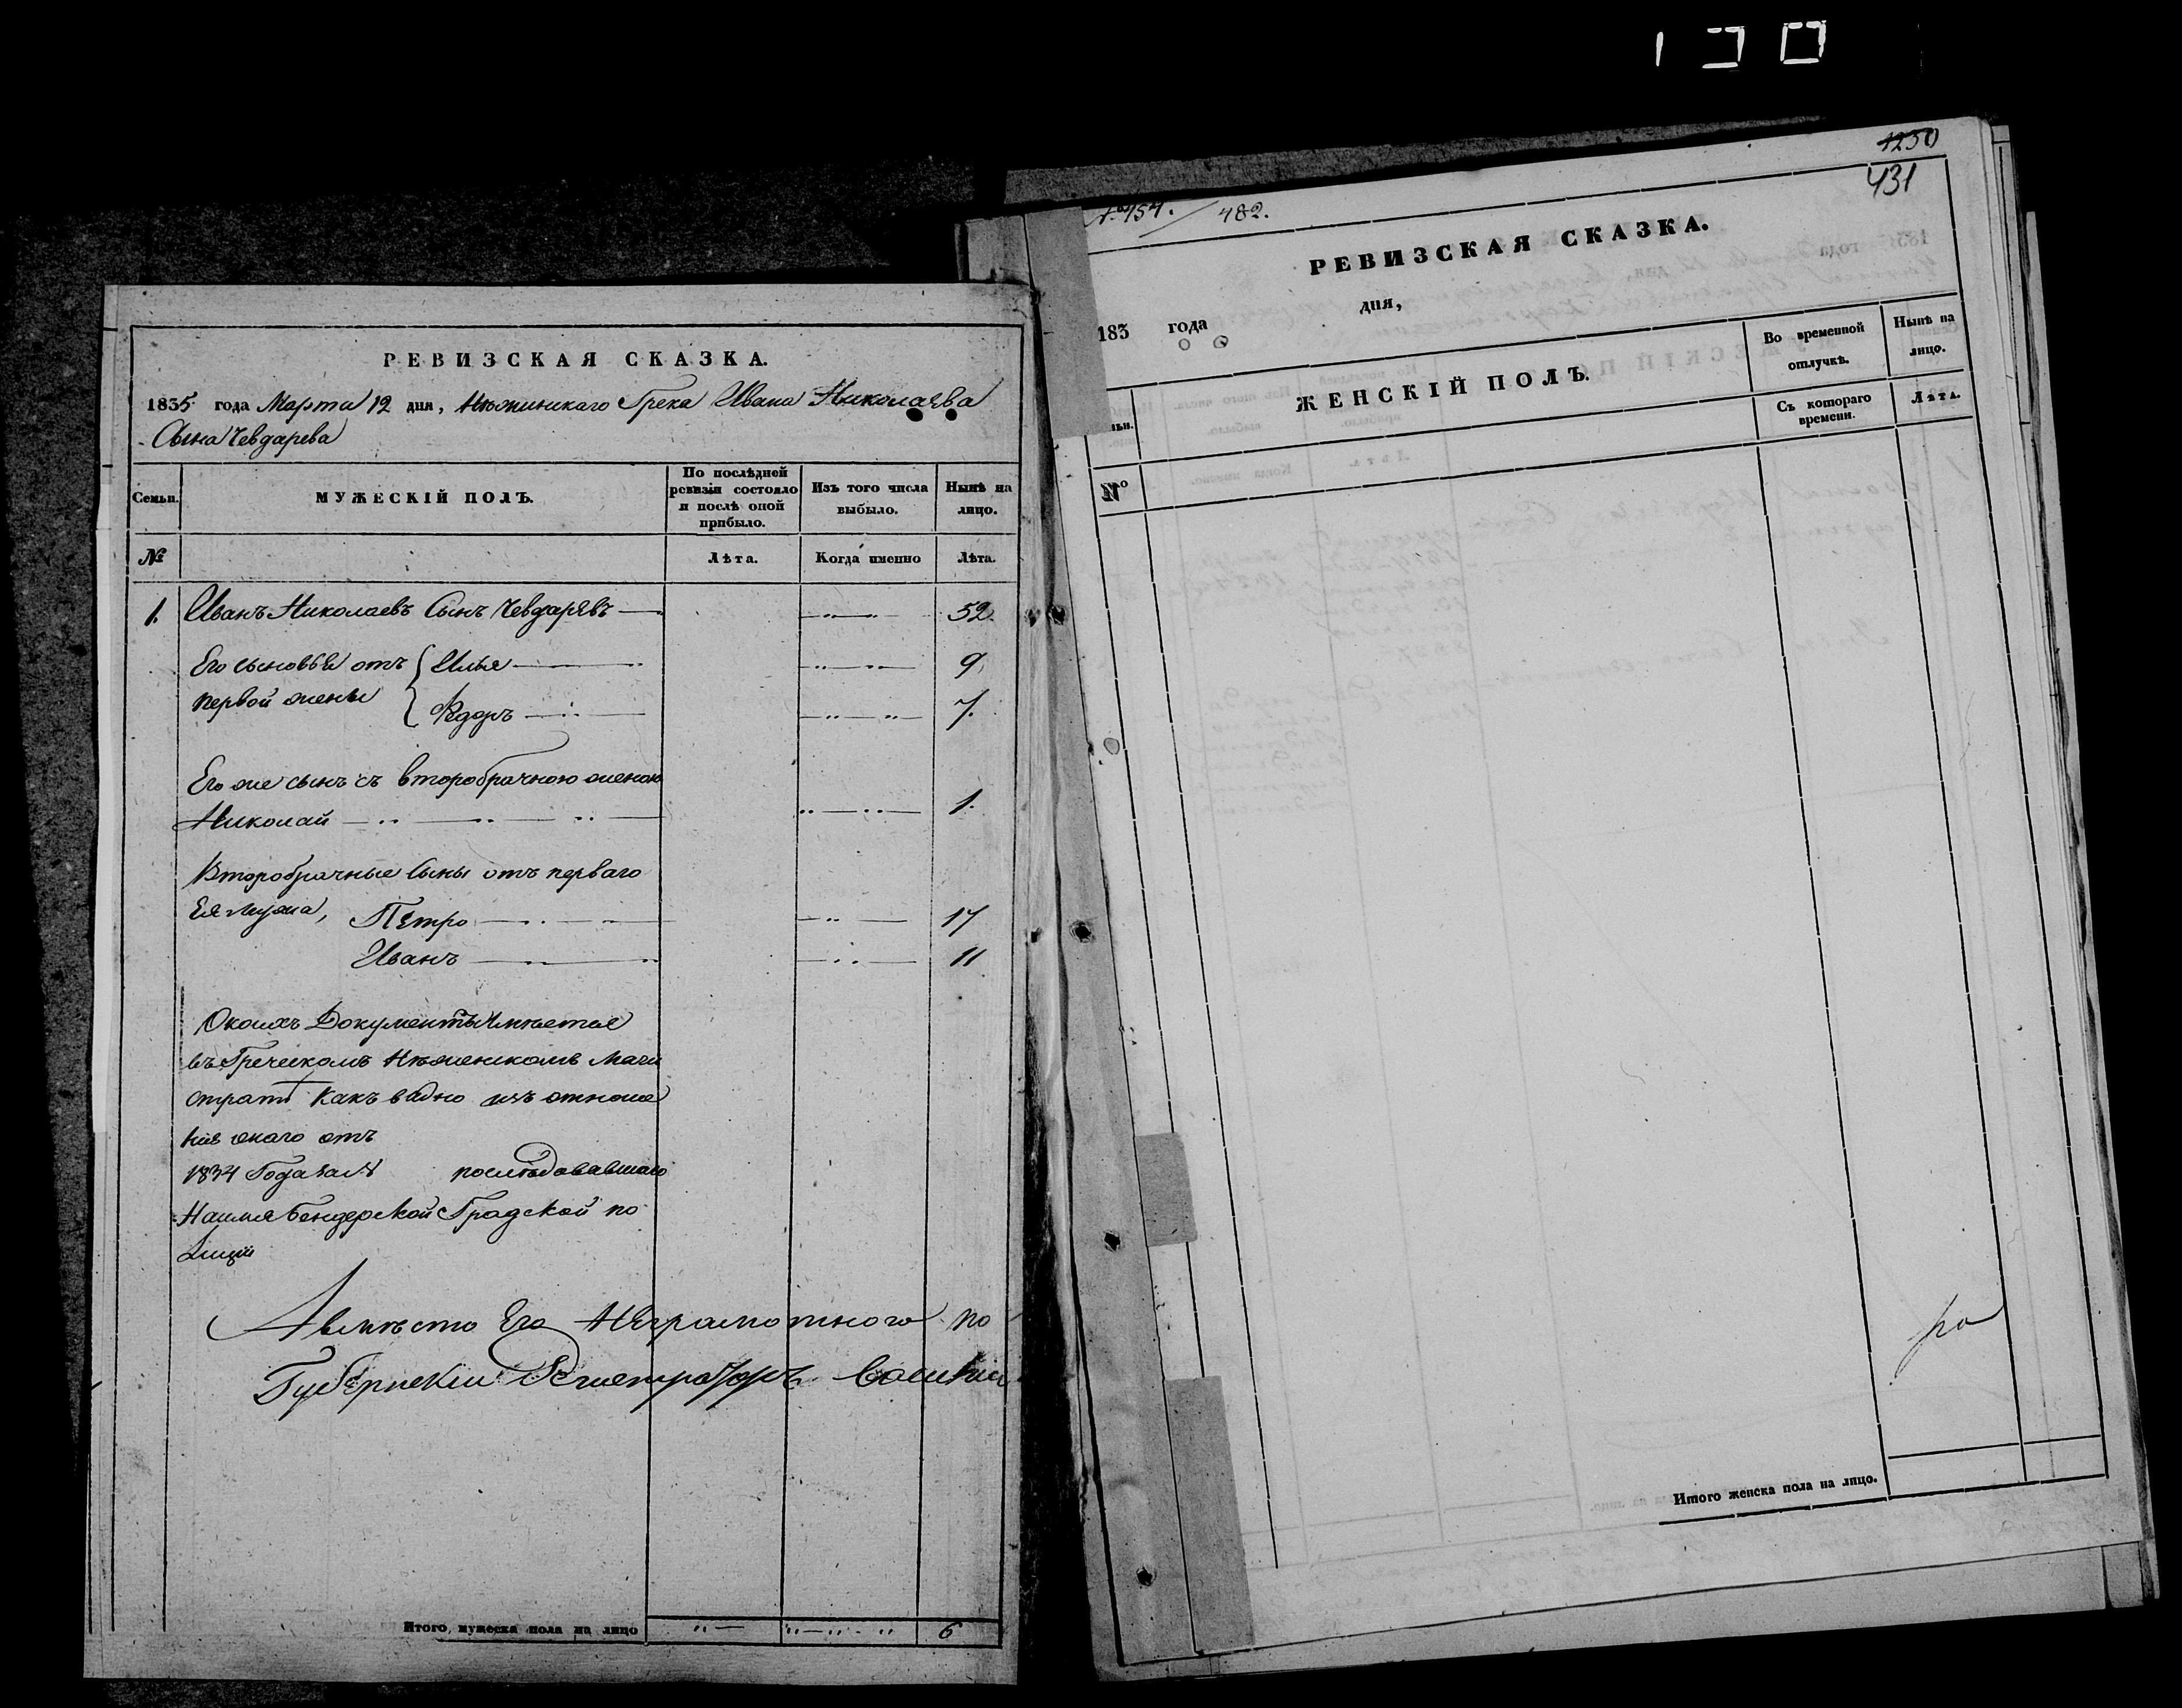 РЕВИЗСКАЯ СКАЗКА.
1835 года Марта 12 дня, Нѣжинскаго Грека Ивана Николаева
Сына Чевдарева
Семьи.
МУЖЕСКІЙ ПОЛЪ.
По послѣдней ревизіи состояло и послѣ оной прибыло.
Изъ того числа выбыло.
Нынѣ на лицо.
№
Лѣта.
Когда именно
Лѣта.
1. Иванъ Николаевъ Сынъ Чевдаревъ 52.
Его сыновья отъ Илья 9
первой жены Федоръ 7.
Его же сынъ съ второбрачною женою
Николай 1.
Второбрачные Сыны отъ перваго
Ея мужа, Петро 17
Иванъ 11
О коихъ Документы имѣется
въ Греческомъ Нѣженскомъ Маги
стратѣ какъ видно изъ отноше
нія онаго отъ
1834 Года за № последовавшаго
На имя Бендерской Градской по
лиціи
А вмѣсто Его Неграмотного по
Губернскій Регистраторъ
Итого мужеска пола на лицо 6
1250
431
482.
РЕВИЗСКАЯ СКАЗКА.
183 года дня,
ЖЕНСКІЙ ПОЛЪ.
Во временной отлучкѣ.
Нынѣ на лицо.
Съ котораго времени.
Лѣта.
№
Итого женска пола на лицо.